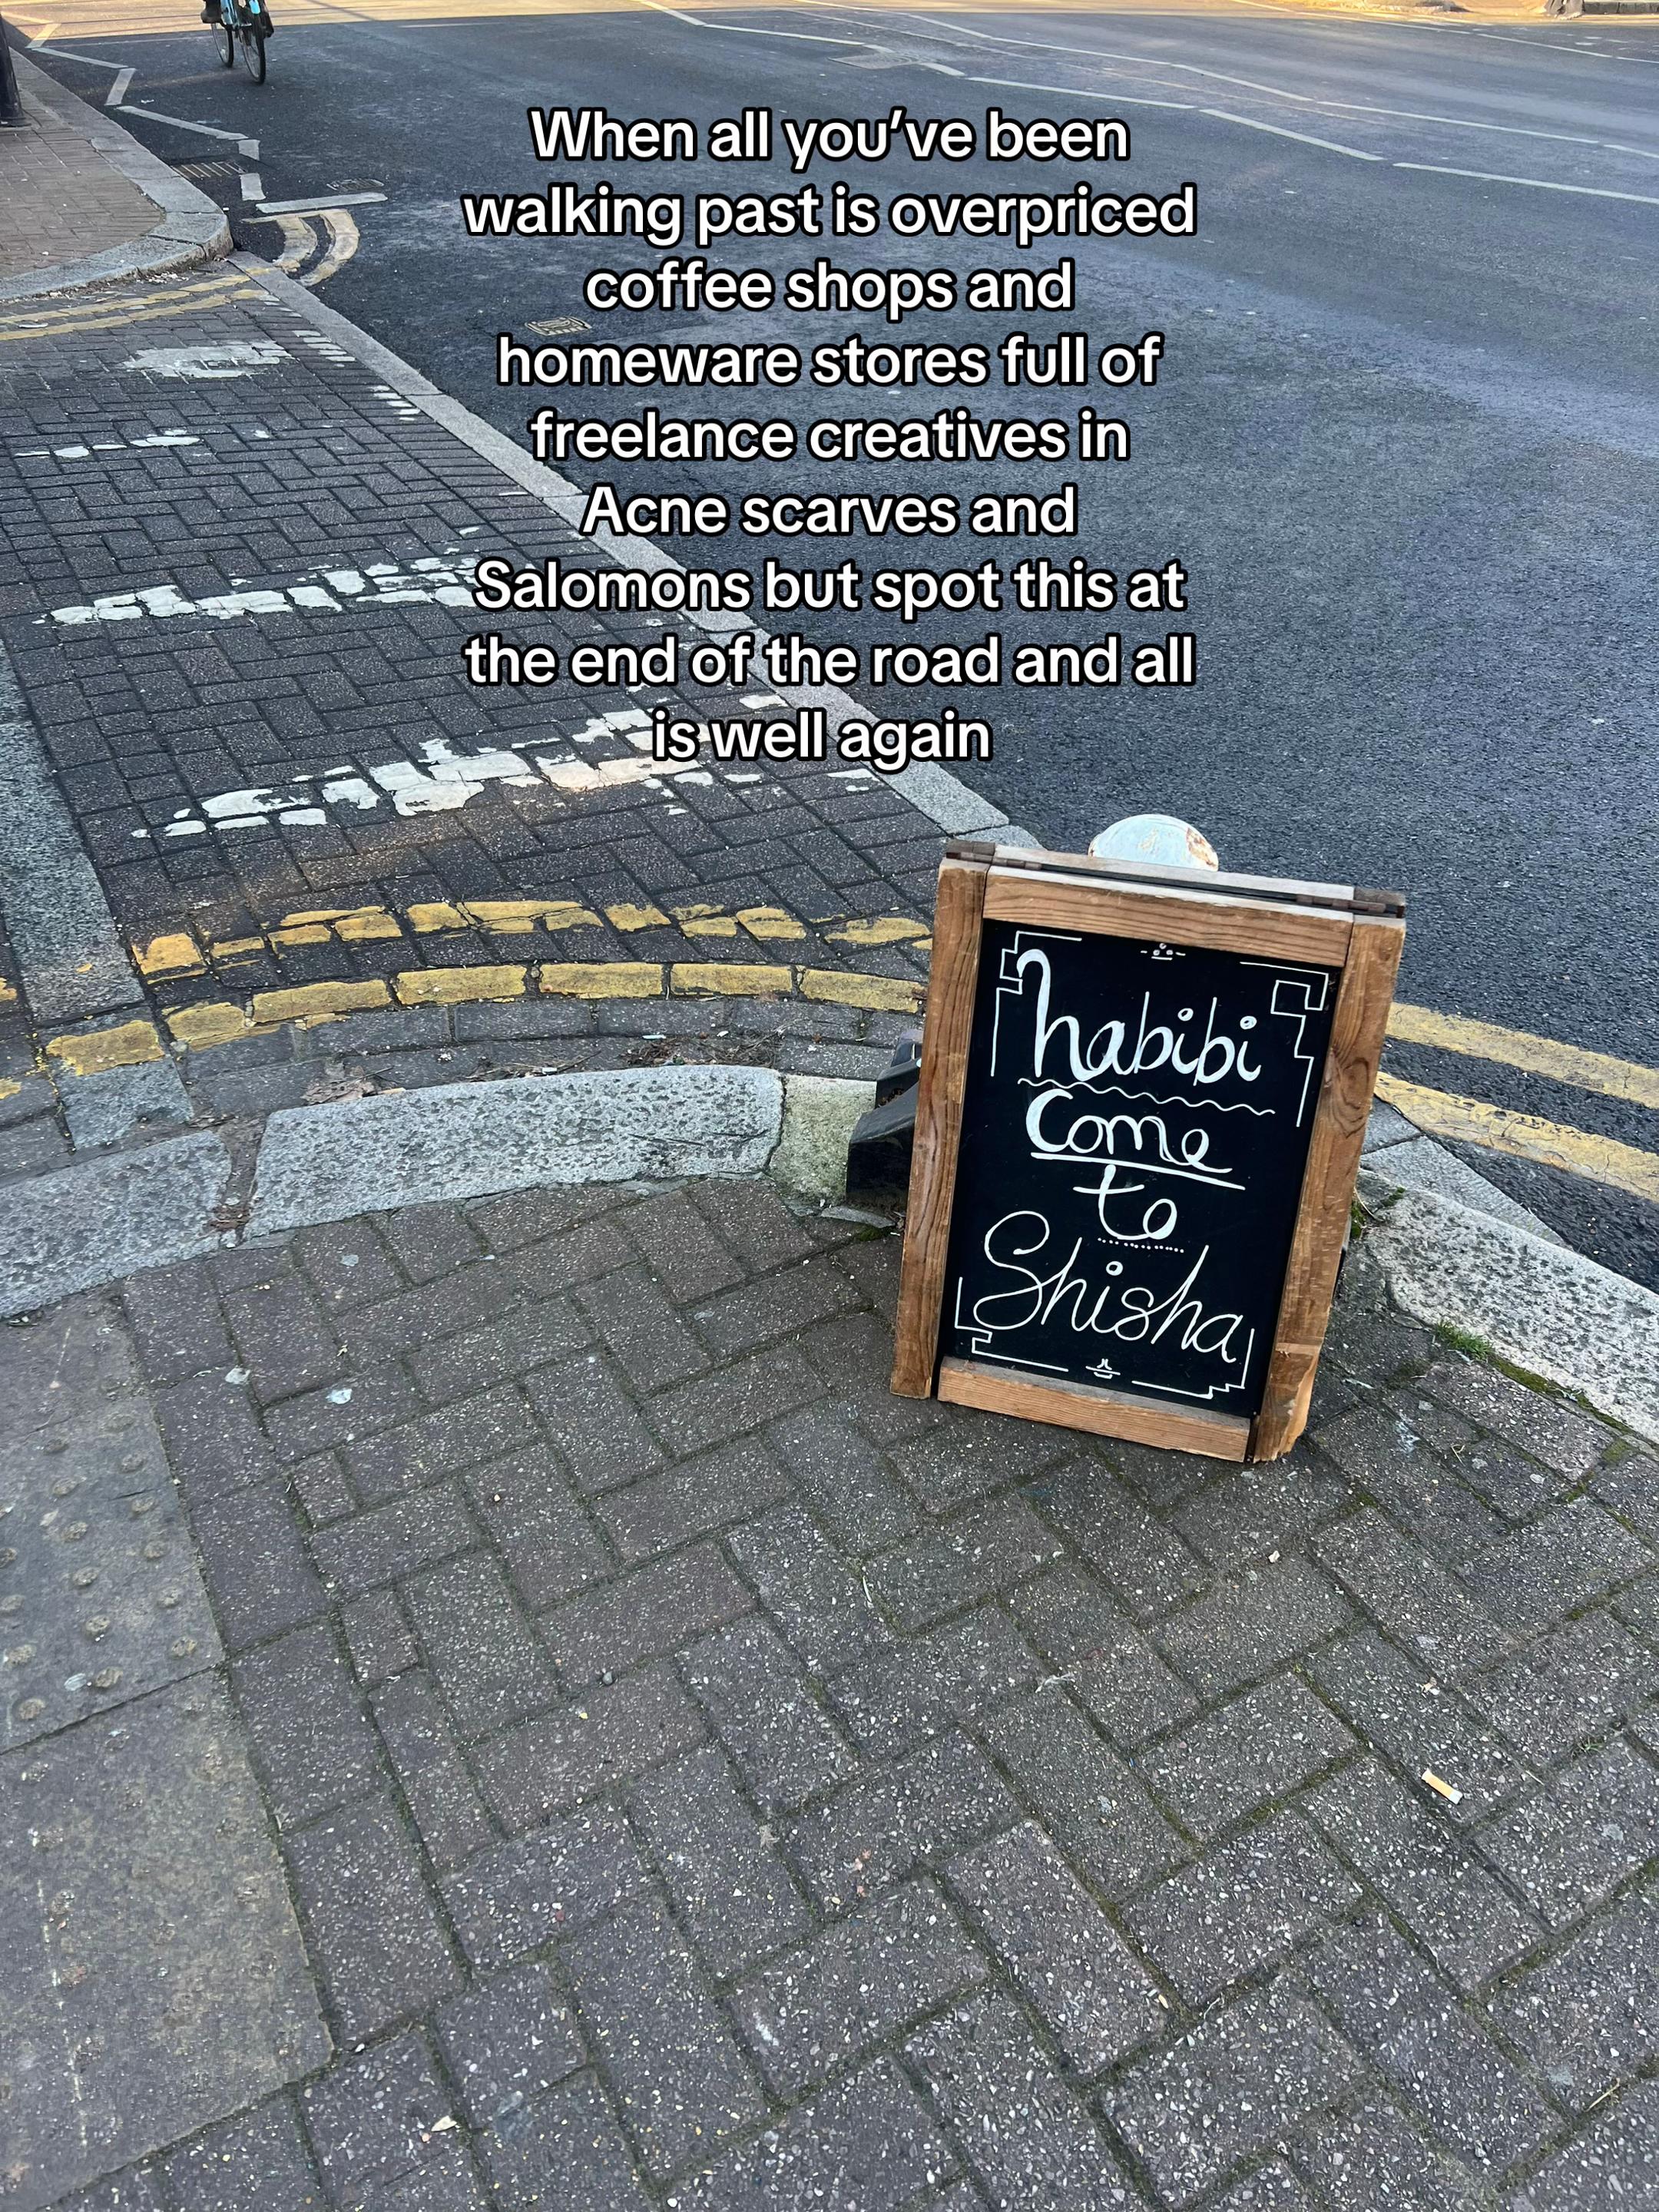 When all you’ve been
walking past is overpriced
coffee shops and
homeware stores full of
freelance creatives in
Acne scarves and
Salomons but spot this at
the end of the road and all
is well again
habibi
come
to
Shisha